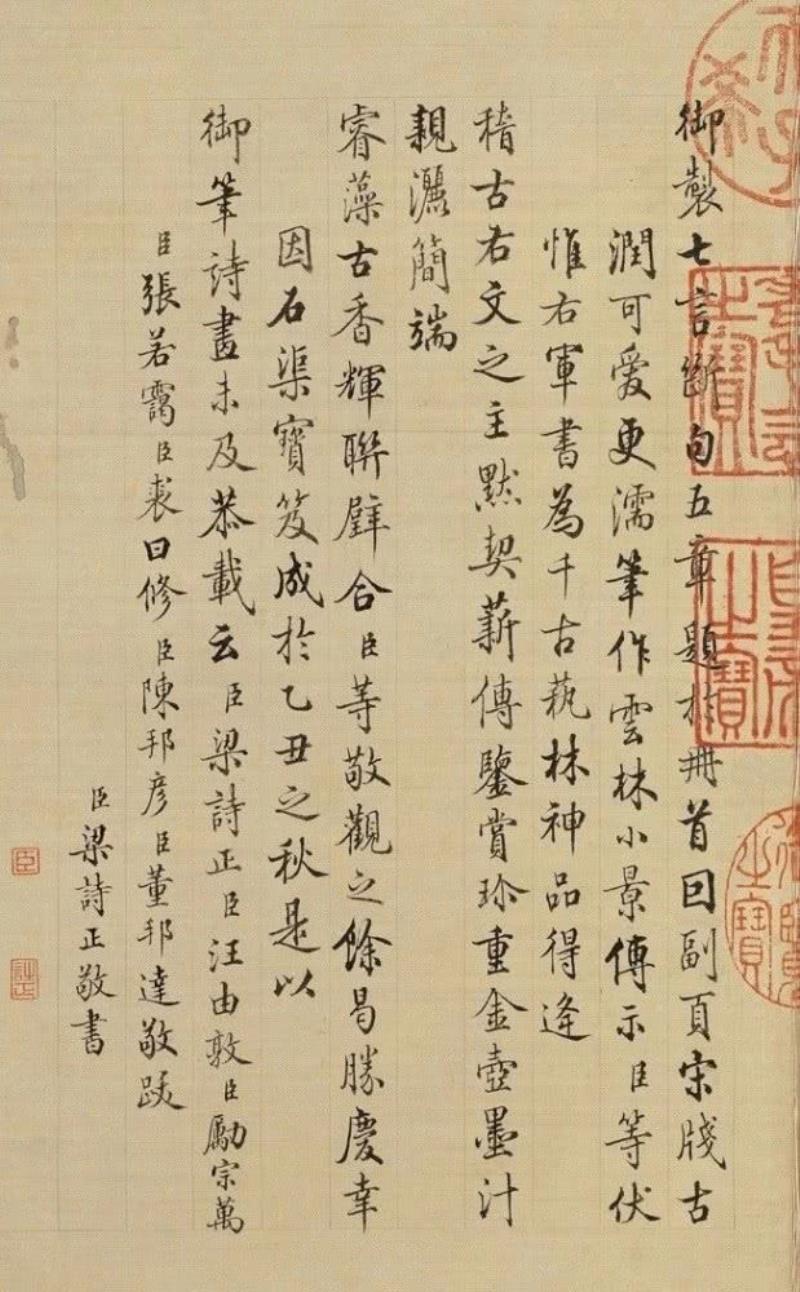 御製七言斷句五章題於冊首回副頁宋牋古
潤可愛更濡筆作雲林小景傳示臣等伏
惟右軍書為千古藝林神品得逢
稽古右文之主默契薪傳鑒賞珍重金壺墨汁
親灑簡端
睿藻古香輝聯璧合臣等敬觀之餘曷勝慶幸
因石渠寶笈成於乙丑之秋是以
御筆詩畫未及恭載云臣梁詩正臣汪由敦臣勵宗萬
臣張若靄臣裘曰修臣陳邦彦臣董邦達敬跋
臣梁詩正敬書
臣